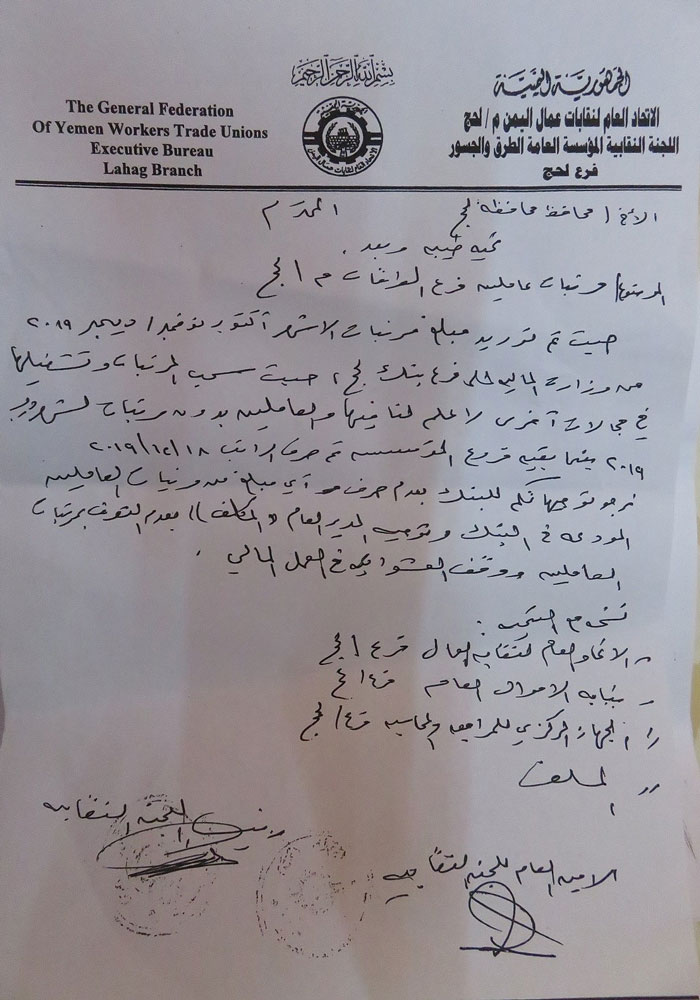 بسم الله الرحمن الرحيم
الجمهورية اليمنية
الاتحاد العام لنقابات عمال اليمن م/ لحج
اللجنة النقابية المؤسسة العامة الطرق والجسور
فرع لحج
The General Federation
Of Yemen Workers Trade Unions
Executive Bureau
Lahag Branch
الأخ / محافظ محافظة لحج المحترم
تحيه طيبه وبعد .
الموضوع / مرتبات عاملين فرع الطرقات م / لحج
حيث تم توريد مبلغ مرتبات الاشهر أكتوبر نوفمبر / ديسمبر ٢٠١٩
من وزارة الماليه الى فرع بنك لحج ، حيث سحب المرتبات وتشغيلها
في مجالات آخرى لا علم لنا فيها والعاملين بدون مرتبات لشهر
٢٠١٩ بينما بقيه فروع المؤسسه تم صرف الراتب ١٨/١٢/٢٠١٩
نرجو توجيهاتكم للبنك بعدم صرف آي مبلغ من مرتبات العاملين
المودعه في البنك وتوجيه المدير العام (( المكلف )) بعدم التصرف بمرتبات
العاملين ووقف العشوائيه في العمل المالي .
نسخه مع التحيه :
الاتحاد العام لنقابه العمال فرع / لحج
نيابه الاموال العامه فرع / لحج
الجهاز المركزي للمراجعه والمحاسبه فرع / لحج
الملف
رئيس اللجنة النقابيه
الامين العام للجنه النقابيه